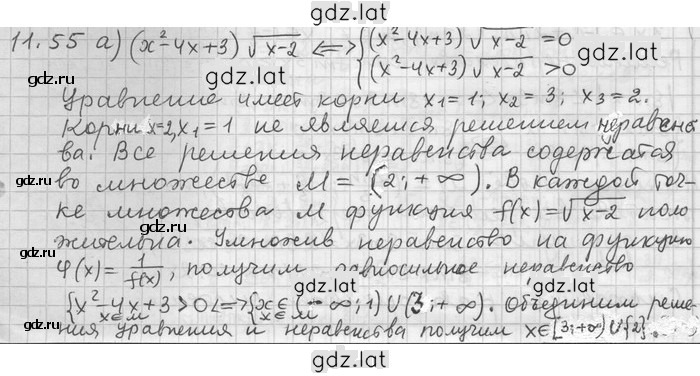 gdz.lat
11.55 а) (x²-4x+3)√x-2 <=> {(x²-4x+3)√x-2 =0
(x²-4x+3)√x-2 >0
gdz.lat
Уравнение имеет корни x₁=1; x₂=3; x₃=2.
Корни x=2, x₁=1 не является решением неравенс
ва. Все решения неравенства содержатся
во множестве M=(2;+∞). В каждой точ-
ке множества M функция f(x)=√x-2 поло
жительна. Умножив неравенство на функцию
φ(x)=1/f(x), получим равносильное неравенство
gdz.lat gdz.lat
{x²-4x+3>0 <=> {x∈(-∞;1)∪(3;+∞). Объединим реше-
x∈M x∈M
ния уравнения и неравенства получим x∈[3;+∞)∪{2}.
gdz.lat